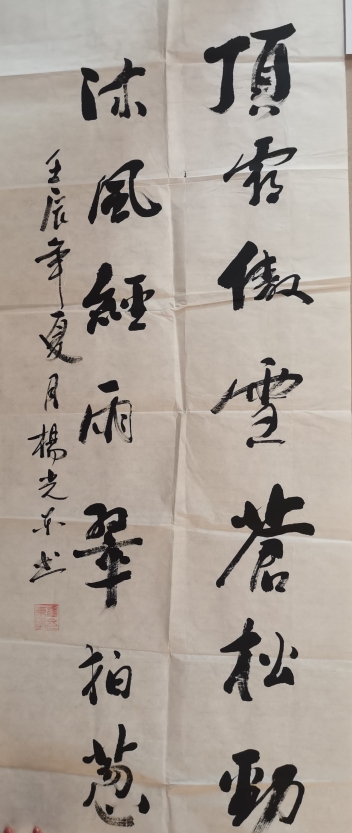 頂霜傲雪蒼松勁
沐風經雨翠柏蔥
壬辰年夏月楊光東書